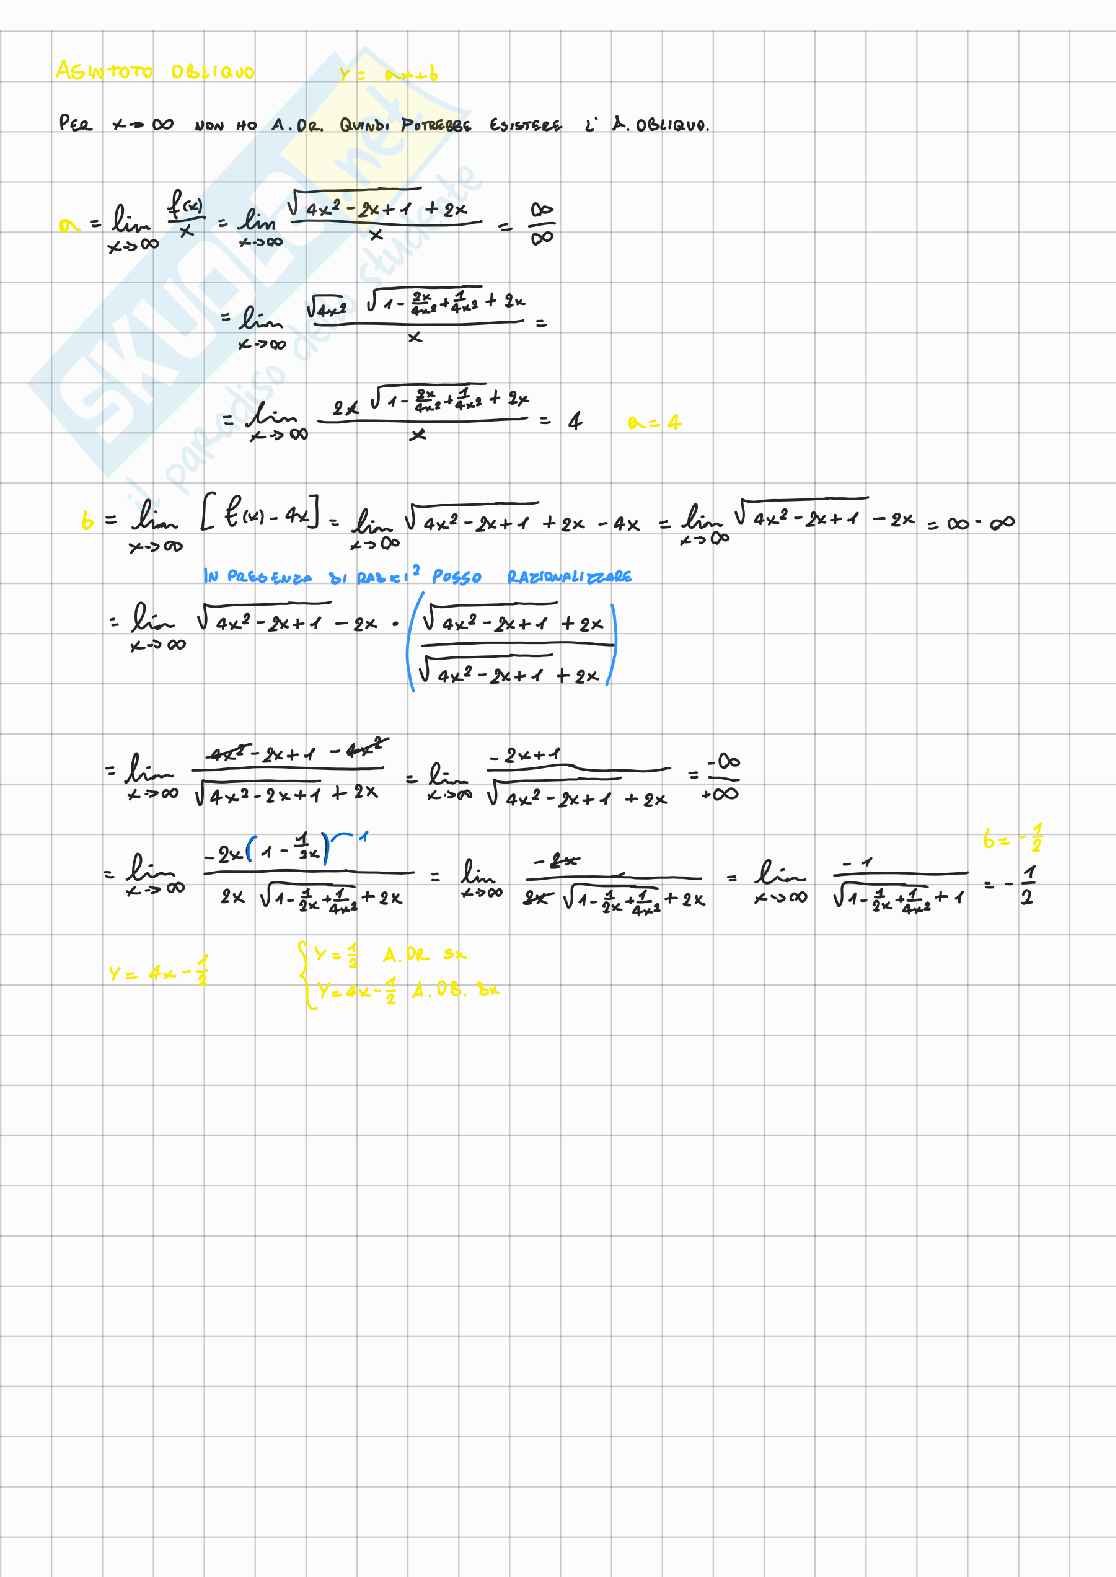 ASINTOTO OBLIQUO y = ax+b
PER x→∞ NON HO A.OR. QUINDI POTREBBE ESISTERE L'A.OBLIQUO.
a = lim x→∞ f(x)/x = lim x→∞ (√(4x²-2x+1) + 2x)/x = ∞/∞
= lim x→∞ (√(4x²) √(1-2x/4x²+1/4x²) + 2x)/x =
= lim x→∞ (2x √(1-2x/4x²+1/4x²) + 2x)/x = 4 a=4
b = lim x→∞ [f(x)-4x] = lim x→∞ √(4x²-2x+1) + 2x - 4x = lim x→∞ √(4x²-2x+1) - 2x = ∞-∞
IN PRESENZA DI RADICI² POSSO RAZIONALIZZARE
= lim x→∞ √(4x²-2x+1) - 2x · ((√(4x²-2x+1) + 2x)/(√(4x²-2x+1) + 2x))
= lim x→∞ (4x²-2x+1-4x²)/(√(4x²-2x+1) + 2x) = lim x→∞ (-2x+1)/(√(4x²-2x+1) + 2x) = -∞/+∞
b=-1/2
= lim x→∞ (-2x(1-1/2x)→1)/(2x √(1-1/2x+1/4x²) + 2x) = lim x→∞ (-2x)/(2x √(1-1/2x+1/4x²) + 2x) = lim x→∞ (-1)/(√(1-1/2x+1/4x²) + 1) = -1/2
y = 4x-1/2
{ y=1/2 A.OR sx
y=4x-1/2 A.OB. Dx
SKUOLA.net
il paradiso dello studente